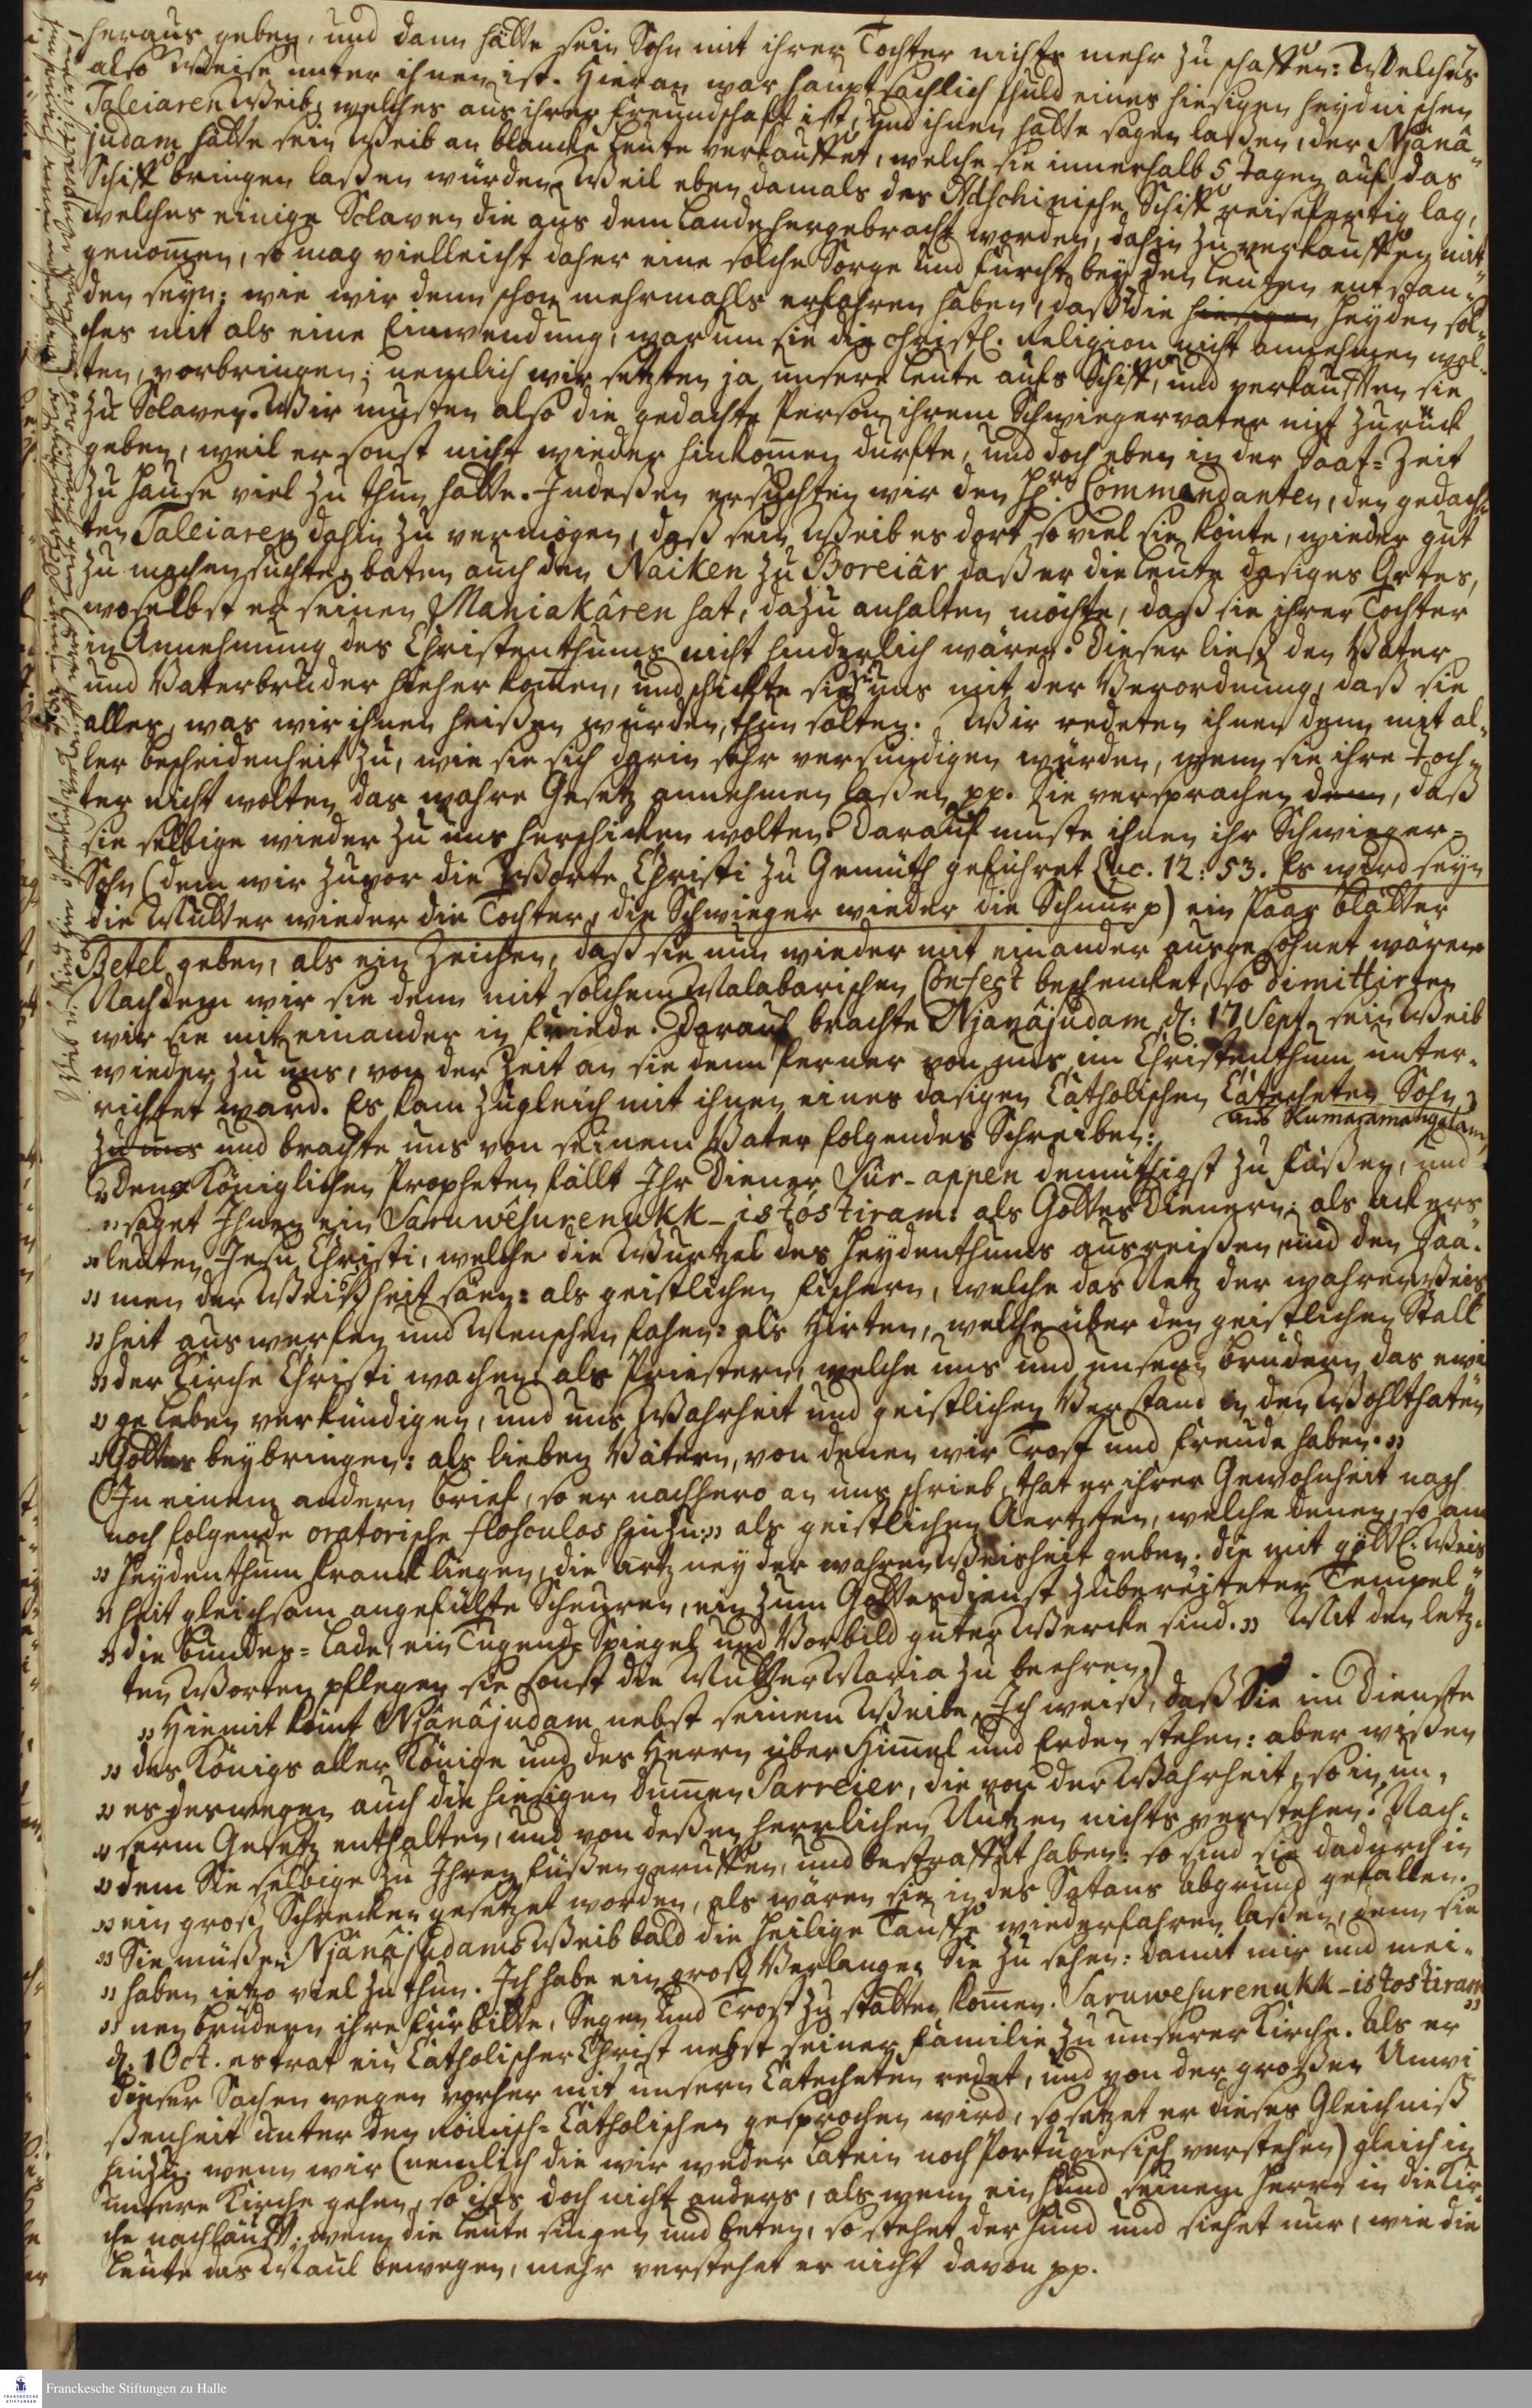 heraus geben, und dann hätte sein Sohn mit ihrer Tochter nichts mehr zu schaffen: Welches
also Weise unter ihnen ist. Hieran war hauptsächlich schuld eines hiesigen heydnischen
Taleiaren Weib, welches aus ihrer Freundschaft ist, und ihnen hatte sagen laßen, der Njânâ-
judam hätte sein Weib an blancke Leute verkauffet, welche sie innerhalb 5 Tagen auf das
Schiff bringen laßen würden. Weil eben damals das Atschinische Schiff reisefertig lag,
welches einige Sclaven die aus dem Lande hergebracht worden, dahin zu verkauffen mit-
genom̄en, so mag vielleicht daher eine solche Sorge und Furcht bey den Leuten entstan-
den seyn; wie wir denn schon mehrmahls erfahren haben, daß die hiesigen Heyden sol-
ches mit als eine Einwendung, warum sie die Christl. Religion nicht annehmen wol-
ten, vorbringen; nemlich wir setzten ja unsere Leute aufs Schiff, und verkaufften sie
zu Sclaven. Wir musten also die gedachte Person ihrem Schwiegervater mit zurück
geben, weil er sonst nicht wieder hinkom̄en durfte, und doch eben in der Saat-Zeit
zu Hause viel zu thun hatte. Indeßen ersuchten wir den Hrs. Commendanten, den gedach-
ten Taleiaren dahin zu vermögen, daß sein Weib es dort so viel sie könte, wieder gut
zu machen suchte, baten auch den Naiken zu Boreiâr daß er die Leute dasiges Ortes,
woselbst er seinen Maniakâren hat, dazu anhalten möchte, daß sie ihrer Tochter
in Annehmung des Christenthums nicht hinderlich wären. Dieser ließ den Vater
und Vaterbruder hieher kom̄en, und schickte sie zu uns mit der Verordnung, daß sie
alles, was wir ihnen heißen würden, thun solten. Wir redeten ihnen denn mit al-
ler Bescheidenheit zu, wie sie sich darin sehr versündigen würden, wenn sie ihre Toch-
ter nicht wolten das wahre Gesetz annehmen laßen pp. Sie versprachen denn, daß
sie selbige wieder zu uns herschicken wolten. Darauf muste ihnen ihr Schwieger-
Sohn (dem wir zuvor die Worte Christi zu Gemüth geführet Luc. 12: 53. Es wird seyn
die Mutter wieder die Tochter, die Schwieger wieder die Schnur p) ein paar Blätter
Betel geben, als ein Zeichen, daß sie nun wieder mit einander ausgesöhnet wären.
Nachdem wir sie denn mit solchem Malabarischen Confect beschencket, so dimittirten
wir sie mit einander in Friede. Darauf brachte Njanâjudam d. 17 Sept. sein Weib
wieder zu uns, von der Zeit an sie denn ferner von uns im Christenthum unter-
richtet ward. Es kam zugleich mit ihnen eines dasigen Catholischen Catecheten Sohn
aus Kumaramangalam,
zu uns und brachte uns von seinem Vater folgendes Schreiben:
"Denen Königlichen Propheten fällt Ihr Diener Sur-appen demüthigst zu Füßen, und
"saget Ihnen ein Saruwêsurenukk-istostiram: als Gottes Dienern; als Ackers-
"leuten Jesu Christi, welche die Wurtzel des Heydenthums ausreißen und den Saa-
"men der Weißheit säen: als geistlichen Fischern, welche das Netz der wahren Weis
"heit auswerfen und Menschen fahen: als Hirten, welche über den geistlichen Stall
"der Kirche Christi wachen: als Priestern, welche uns und unsern Brüdern das ewi
"ge Leben verkündigen, und uns Wahrheit und geistlichen Verstand in den Wohlthaten
"Gottes beybringen: als lieben Vätern, von denen wir Trost und Freude haben."
(In einem andern Brief, so er nachhero an uns schrieb, that er ihrer Gewohnheit nach
noch folgende oratorische flosculos hinzu: "als geistlichen Aertzten, welche denen, so am
"Heydenthum kranck liegen, die Artzney der wahren Weisheit geben: die mit göttl. Weis
"heit gleichsam angefüllte Scheuren, ein zum Gottesdienst zubereiteter Tempel
"die Bundes-Lade, ein Tugend-Spiegel und Vorbild guter Wercke sind." Mit den letz-
ten Worten pflegen sie sonst die Mutter Maria zu beehren.)
"Hiemit kom̄t Njânâjudam nebst seinem Weibe. Ich weiß, daß Sie im Dienste
"des Königs aller Könige und des Herrn über Him̄el und Erden stehen: aber wißen
"es deswegen auch die hiesigen dum̄en Parreier, die von der Wahrheit, so in un-
"serm Gesetz enthalten, und von deßen herrlichen Nutzen nichts verstehen? Nach-
"dem Sie selbige zu Ihren Füßen geruffen, und bestraffet haben: so sind sie dadurch in
"ein groß Schrecken gesetzet worden, als wären sie in des Satans Abgrund gefallen.
"Sie müßen Njânâjudams Weib bald die heilige Tauffe wiederfahren laßen, denn sie
"haben ietzo viel zu thun. Ich habe ein groß Verlangen Sie zu sehen: damit mir und mei-
"nen Brüdern ihre Fürbitte, Segen und Trost zu statten kom̄en. Saruwesurenukk-istostiram"
d. 1 Oct. es trat ein Catholischer Christ nebst seiner Familie zu unserer Kirche. Als er
dieser Sachen wegen vorher mit unsern Catecheten redet, und von der großen Unwi
ßenheit unter den Römisch-Catholischen gesprochen wird, so setzet er dieses Gleichniß
hinzu: wenn wir (nemlich die wir weder Latein noch Portugiesisch verstehen) gleich in
unsere Kirche gehen, so ists doch nicht anders, als wenn ein Hund seinem Herrn in die Kir
che nachläufft: wenn die Leute singen und beten, so stehet der Hund und siehet nur, wie die
Leute das Maul bewegen, mehr verstehet er nicht davon pp.
Franckesche Stiftungen zu Halle